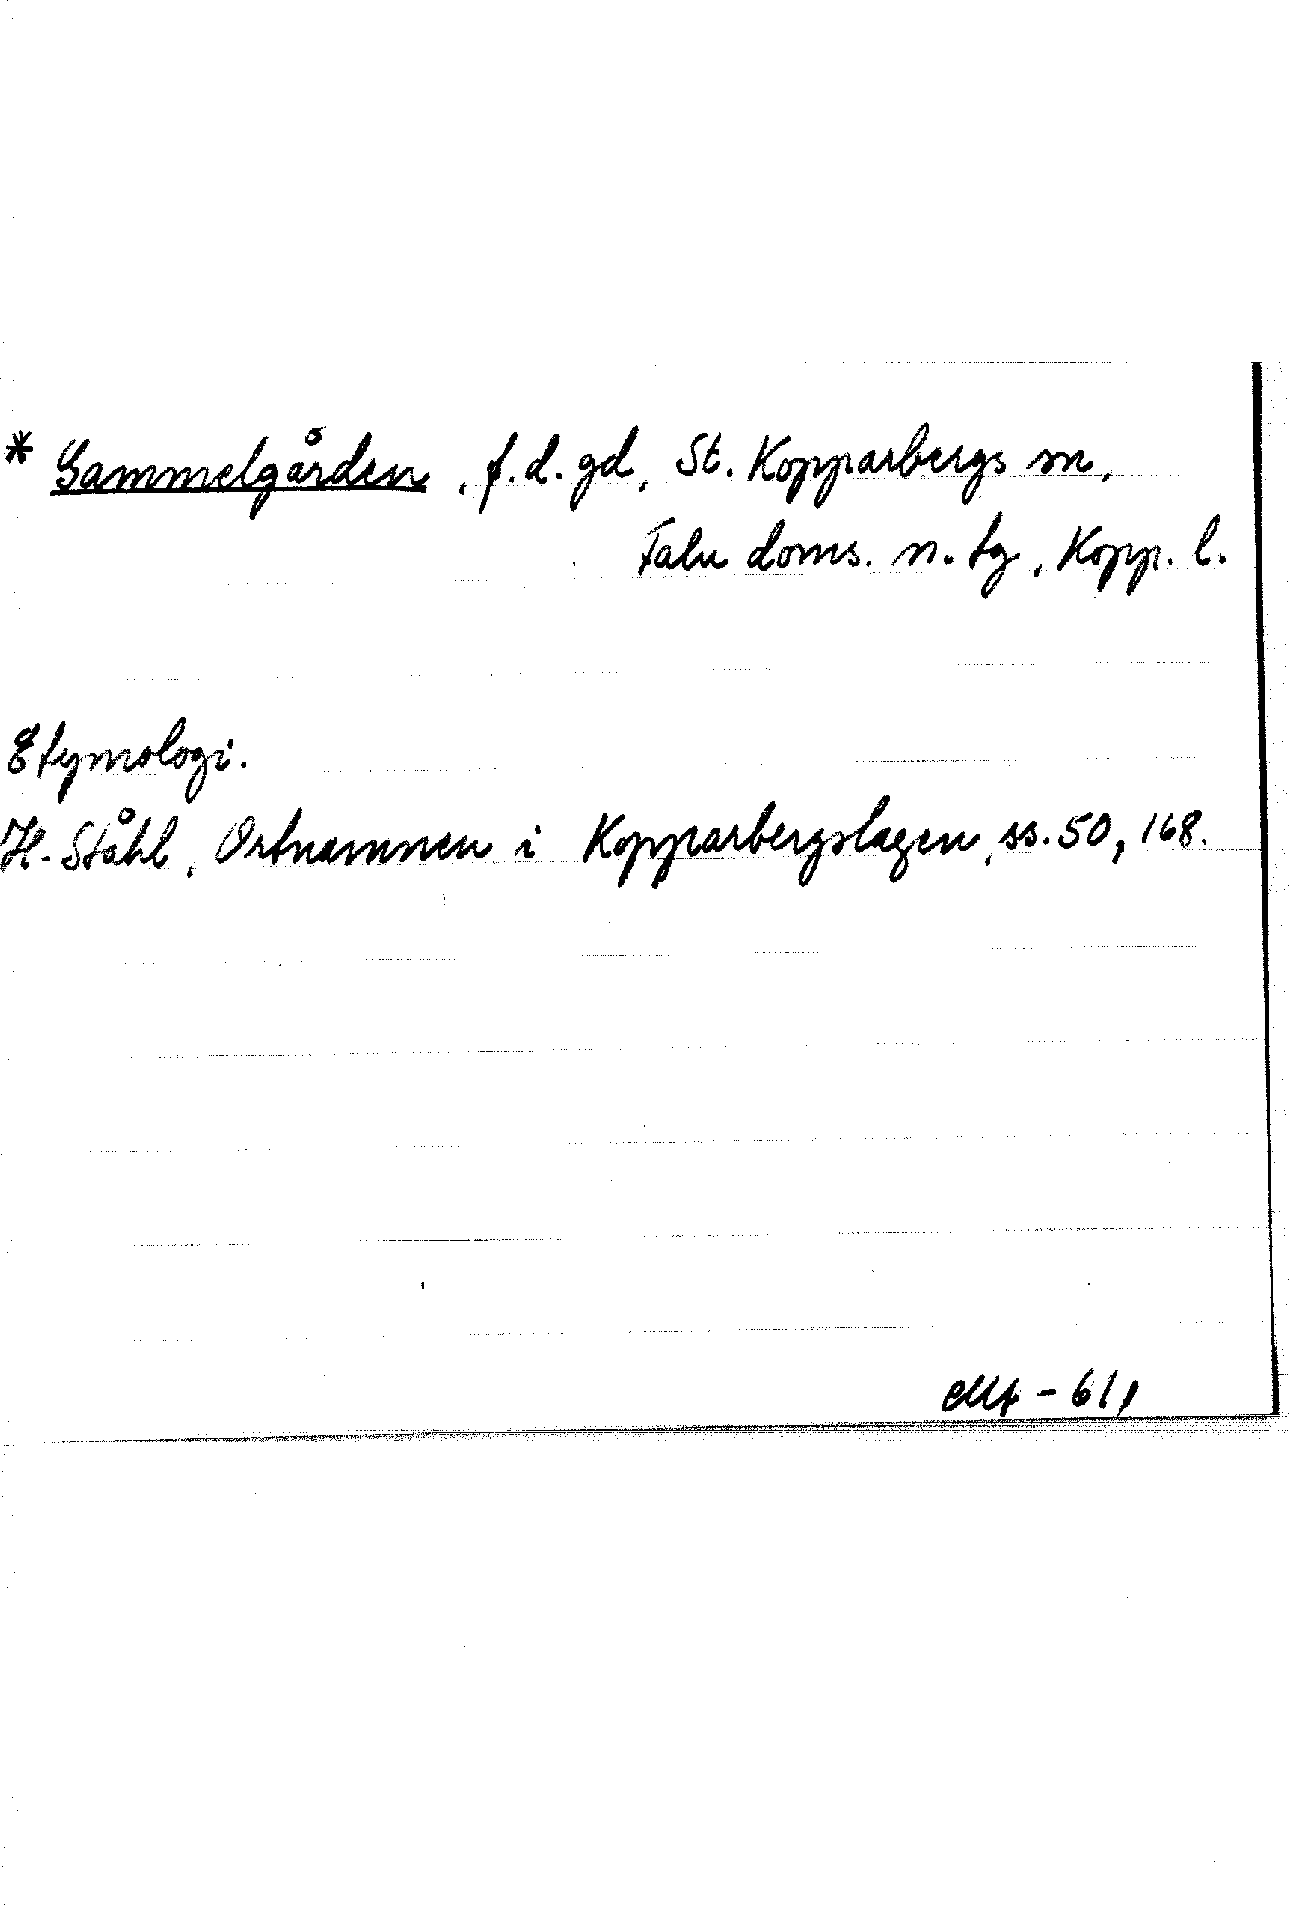 * Gammelgården, f.d. gd, St. Kopparbergs sn,
Falu doms. n. tg, Kopp. l.
Etymologi.
H. Ståhl, Ortnamnen i Kopparbergslagen, ss. 50, 168.